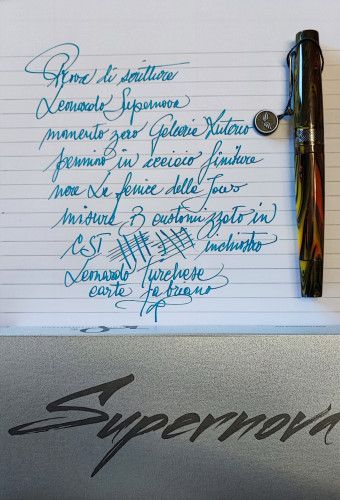 Prova di scrittura
Leonardo Supernova
momento zero Galleria
pennino in acciaio finiture
nere La fenice della Jowo
misura B customizzato in
CSI inchiostro
Leonardo Turchese
carta fabriano
Supernova